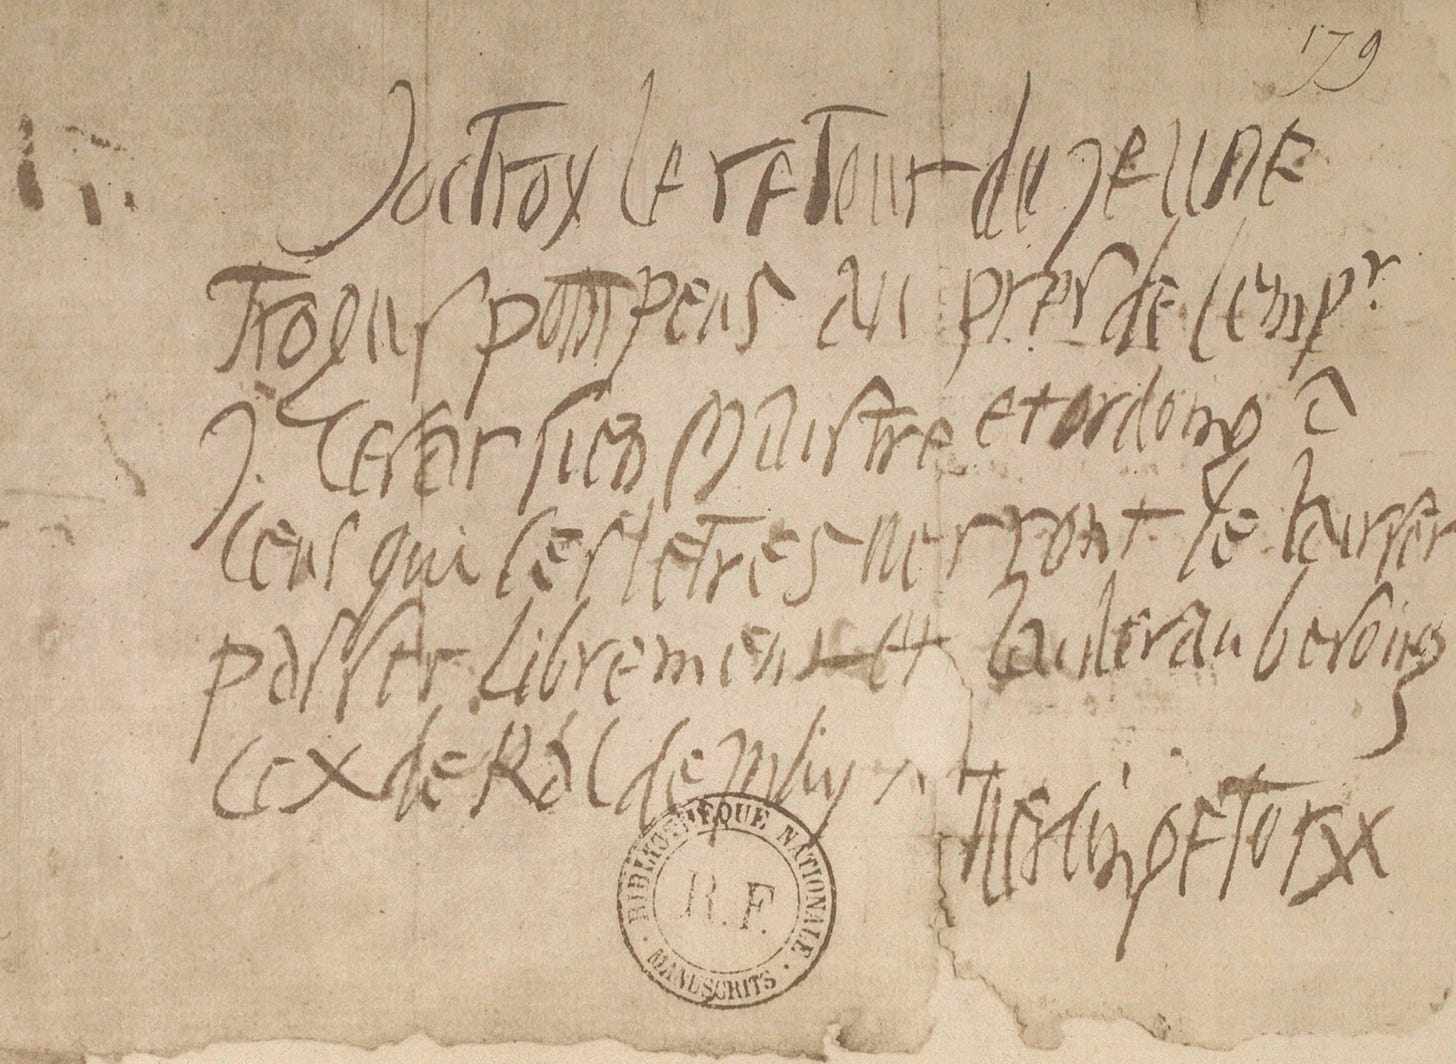 179
J octroy le retour du jeune
trogus pompeus aupres de lempr
J. Cesar sien Maistre et ordong a
ceus qui ces letres verront le laisser
passer librement et layder au besoing
ce X de Kal de may
Versingetorix
BIBLIOTHEQUE NATIONALE
R.F.
MANUSCRITS